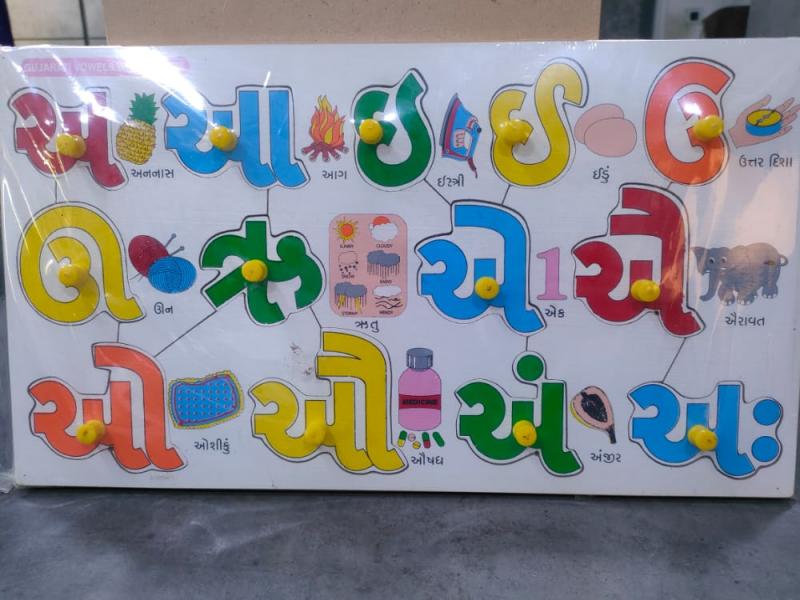 GUJARATI VOWELS
અ
અનનાસ
આ
આગ
ઇ
ઈસ્ત્રી
ઈ
ઈડું
ઉ
ઉત્તર દિશા
ઊ
ઊન
ઋ
SUNNY CLOUDY
SNOW RAINY
STORMY WINDY
ઋતુ
એ
1
એક
ઐ
ઐરાવત
ઓ
ઓશીકું
ઔ
MEDICINE
ઔષધ
અં
અંજીર
અઃ